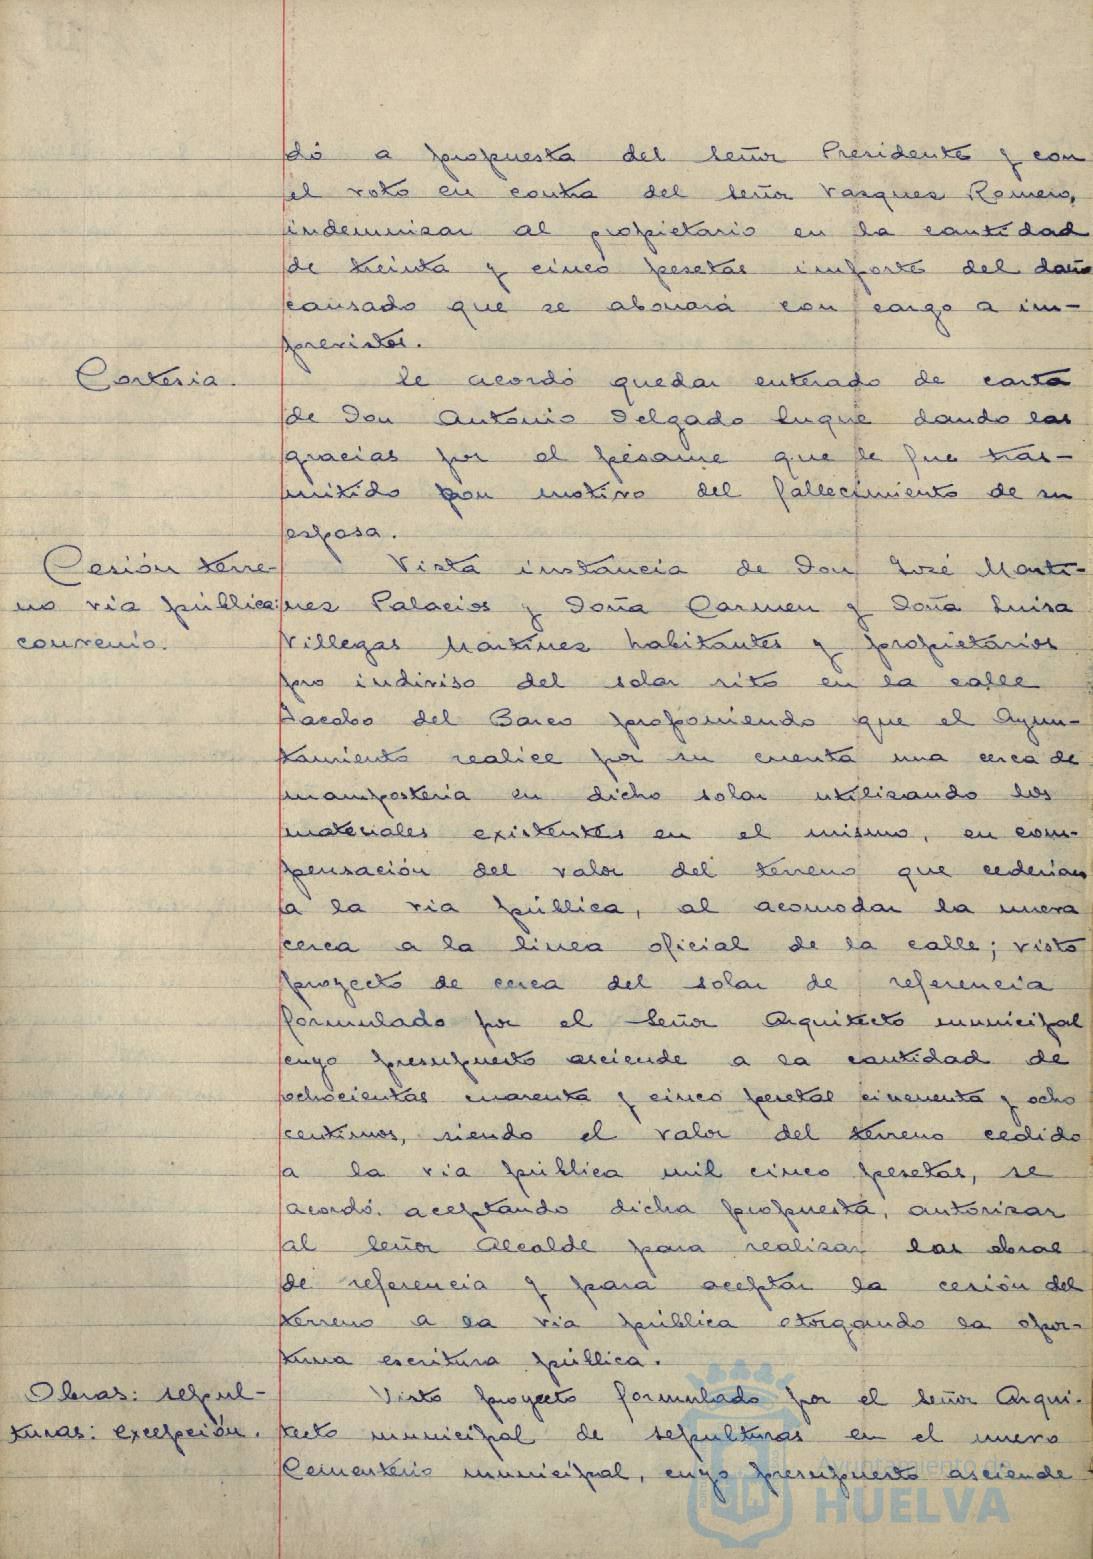 dó a propuesta del Señor Presidente y con
el voto en contra del Señor Vazquez Romero,
indemnizar al propietario en la cantidad
de treinta y cinco pesetas importe del daño
causado que se abonará con cargo a im-
previstos.
Cortesia.
Se acordó quedar enterado de carta
de Don Antonio Delgado Luque dando las
gracias por el pésame que le fue tras-
mitido con motivo del fallecimiento de su
esposa.
Cesión terre-
no via pública:
convenio.
Vista instancia de Don José Marti-
nez Palacios y Doña Carmen y Doña Luisa
Villegas Martínez habitantes y propietarios
pro indiviso del solar sito en la calle
Jacobo del Barco proponiendo que el Ayun-
tamiento realice por su cuenta una cerca de
mamposteria en dicho solar utilizando los
materiales existentes en el mismo, en com-
pensación del valor del terreno que cederian
a la via pública, al acomodar la nueva
cerca a la linea oficial de la calle; visto
proyecto de cerca del solar de referencia
formulado por el Señor Arquitecto municipal
cuyo presupuesto asciende a la cantidad de
ochocientas cuarenta y cinco pesetas cincuenta y ocho
centimos, siendo el valor del terreno cedido
a la via pública mil cinco pesetas, se
acordó, aceptando dicha propuesta, autorizar
al Señor Alcalde para realizar las obras
de referencia y para aceptar la cesión del
terreno a la via pública otorgando la opor-
tuna escritura pública.
Obras: sepul-
turas: excepción.
Visto proyecto formulado por el Señor Arqui-
tecto municipal de sepulturas en el nuevo
Cementerio municipal, cuyo presupuesto asciende
Ayuntamiento de
HUELVA